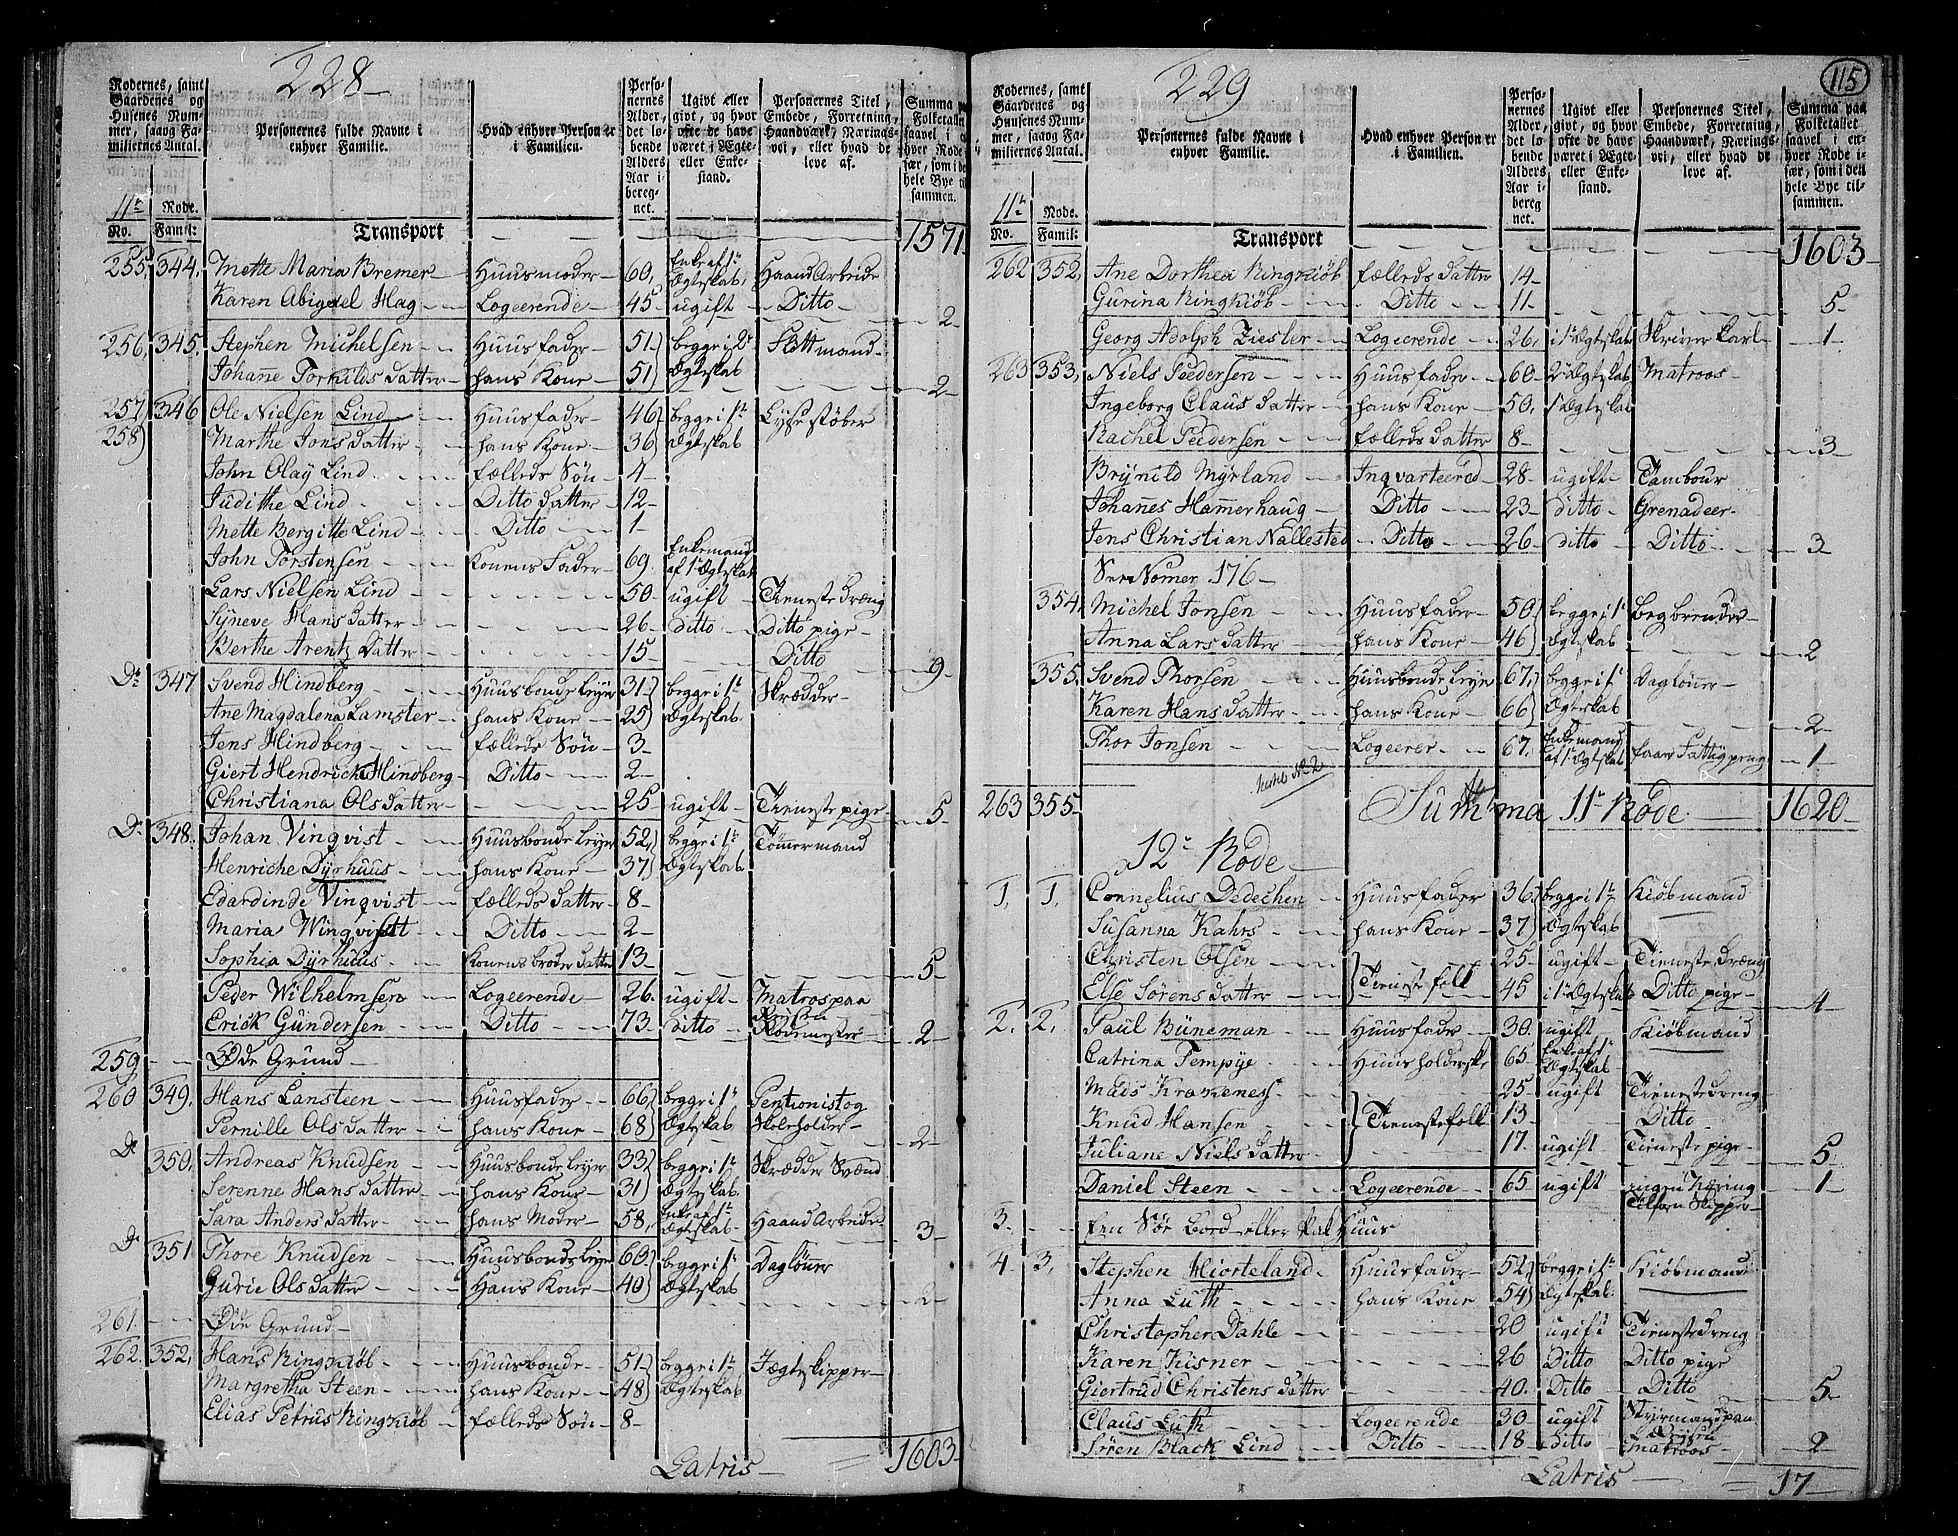 228
Rodernes, samt Gaardenes og Husenes Nummer, saavog Familiernes Antal.
Personernes fulde Navne i enhver Familie.
Hvad enhver Person er i Familien.
Personernes Alder, det lobende Alders Aar iberegnet.
Ugivt eller givt, og hvor ofte de have været i Ægte- eller Enkestand.
Personernes Titel, Embede, Forretning, Haandværk, Næringsvei, eller hvad de leve af.
Summa paa Folketallet saavel i enhver Rode især, som i den hele Bye tilsammen.
11te Rode.
No. Famil:
Transport 1571
255. 344. Mette Maria Bremer Huusmoder 60. Enke af 1ste Ægteskab Haand Arbeide
Karen Abigael Hag Logeerende 45 ugift Ditto 2
256. 345. Stephen Michelsen Huusfader 51 begge i 2det Slottmand
Johanne Torkilds datter hans Kone 51 Ægteskab 2
257 346 Ole Nielsen Lind Huusfader 46 begge i 1ste Lysestøber
258 Marthe Jons datter hans Kone 36 Ægteskab
John Olaÿ Lind fælleds Søn 4
Judithe Lind Ditto datter 12
Mette Bergitte Lind Ditto 1
John Torstensen Konens Fader 69 Enkemand af 1ste Ægteskab
Lars Nielsen Lind 50 ugift Tieneste Dræng
Syneve Hans datter 26 ditto Ditto pige
Berthe Arentz Datter 15 Ditto 9
Do 347 Svend Hindberg Huusbonde Leyer 31 begge i 1ste Skrædder
Ane Magdalena Lamster hans Kone 25 Ægteskab
Jens Hindberg fælleds Søn 3
Giert Hendrich Hindberg Ditto 2
Christiana Ols datter 25 ugift Tieneste pige 5
Do 348 Johan Vinqvist Huusbonde Leyer 52 begge i 1ste Tømmermand
Henriche Dÿrhuus hans Kone 37 Ægteskab
Edardinde Vinqvist fælleds datter 8
Maria Winqvistt Ditto 2
Sophia Dÿrhuus Konens broder datter 13 5
Peder Wilhelmsen Logeerende 26 ugift Matros paa
Erick Gundersen Ditto 73 ditto Rodemester 2
259 Øde Grund
260 349. Hans Lansteen Huusfader 66 begge i 1ste Pentionist og
Pernille Ols datter hans Kone 68 Ægteskab Skoleholder 2
Do 350. Andreas Knudsen Huusbonde Leyer 33 begge i 1ste Skrædder Svend
Serenne Hans datter hans Kone 31 Ægteskab
Sara Anders datter hans Moder 58 Enke af 1ste Ægteskab Haand Arbeide 3
Do 351 Thore Knudsen Huusbonde Leyer 60 begge i 1ste Dagløner
Gurie Ols datter Hans Kone 40 Ægteskab 2
261. Øde Grund
262. 352. Hans Ringkiøb Huusbonde 51 begge i 1ste Jægteskipper
Margretha Steen hans Kone 48 Ægteskab
Elias Petrus Ringkiøb fælleds Søn 8
Latris 1603
229
115
Rodernes, samt Gaardenes og Huusenes Nummer, saavog Familiernes Antal.
Personernes fulde Navne i enhver Familie.
Hvad enhver Person er i Familien.
Personernes Alder, det lobende Alders Aar iberegnet.
Ugivt eller givt, og hvor ofte de have været i Ægte- eller Enkestand.
Personernes Titel, Embede, Forretning, Haandværk, Næringsvei, eller hvad de leve af.
Summa paa Folketallet saavel i enhver Rode især, som i den hele Bye tilsammen.
11te Rode.
No. Famil:
Transport 1603
262 352. Ane Dorthea Ringkiöb fælleds datter 14
Gurina Ringkiöb Ditto 11 5
Georg Adolph Ziesler Logeerende 26. i 1ste Ægteskab Skriver Karl 1
263 353. Niels Pedersen Huusfader 60 2det Ægteskab Matroos
Ingeborg Claus datter hans Kone 50. 1ste Ægteskab
Rachel Pedersen fælleds datter 8 3
Brÿnild Mÿrland Inqvarteered 28 ugift Tambour
Johannes Hamerhaug Ditto 23 ditto Grenadeer
Jens Christian Nallested Ditto 26 ditto Ditto 3
See Nomer 176
354. Michel Jonsen Huusfader 50 begge i 1ste begbrender
Anna Lars datter hans Kone 46 Ægteskab 2
355. Svend Thorsen Huusbonde Leyer 67 begge i 1ste Dagløner
Karen Hans datter hans Kone 66 Ægteskab 2
Thor Jonsen Logeerer 67. Enkemand af 1ste Ægteskab faaer Fattigpenge 1
263 355. Summa 11te Rode 1620
12te Rode
1. 1. Cornelius Dedechen Huusfader 36 begge i 1ste Kiøbmand
Susanna Kahrs hans Kone 37 Ægteskab
Christen Olsen Tienestefolk 25 ugift Tieneste dræng
Else Sörens datter 45 i 1ste Ægteskab Ditto pige 4
2. 2. Paul Büneman Huusfader 30. ugift Kiøbmand
Catrina Tempÿe Huusholderske 65 Enke af 1ste Ægteskab
Mads Kramenes 25 ugift Tieneste dreng
Knud Hansen Tienestefolk 13 Ditto
Juliane Niels datter 17 ugift Tieneste pige 5
Daniel Steen Logeerende 65 ugift ingen Næring Tilforn Skipper 1
3. Een Søe Boed eller Skal Huus
4. 3. Stephen Hiorteland Huusfader 52 begge i 1ste Kiøbmand
Anna Luth hans Kone 54 Ægteskab
Christopher Dahle 20 ugift Tieneste dreng
Karen Kisner 26 Ditto Ditto pige
Giertrud Christens datter 40. Ditto Ditto 5
Claus Luth Logeerende 30 ugift Styrmand paa
Sören Black Lind Ditto 18 ditto Matroos 2
Latris 17